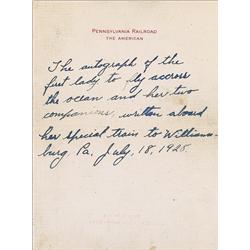 PENNSYLVANIA RAILROAD
THE AMERICAN
The autograph of the
first lady to fly accross
the ocean and her two
companions, written aboard
her special train to Williams-
burg, Pa. July, 18, 1928.